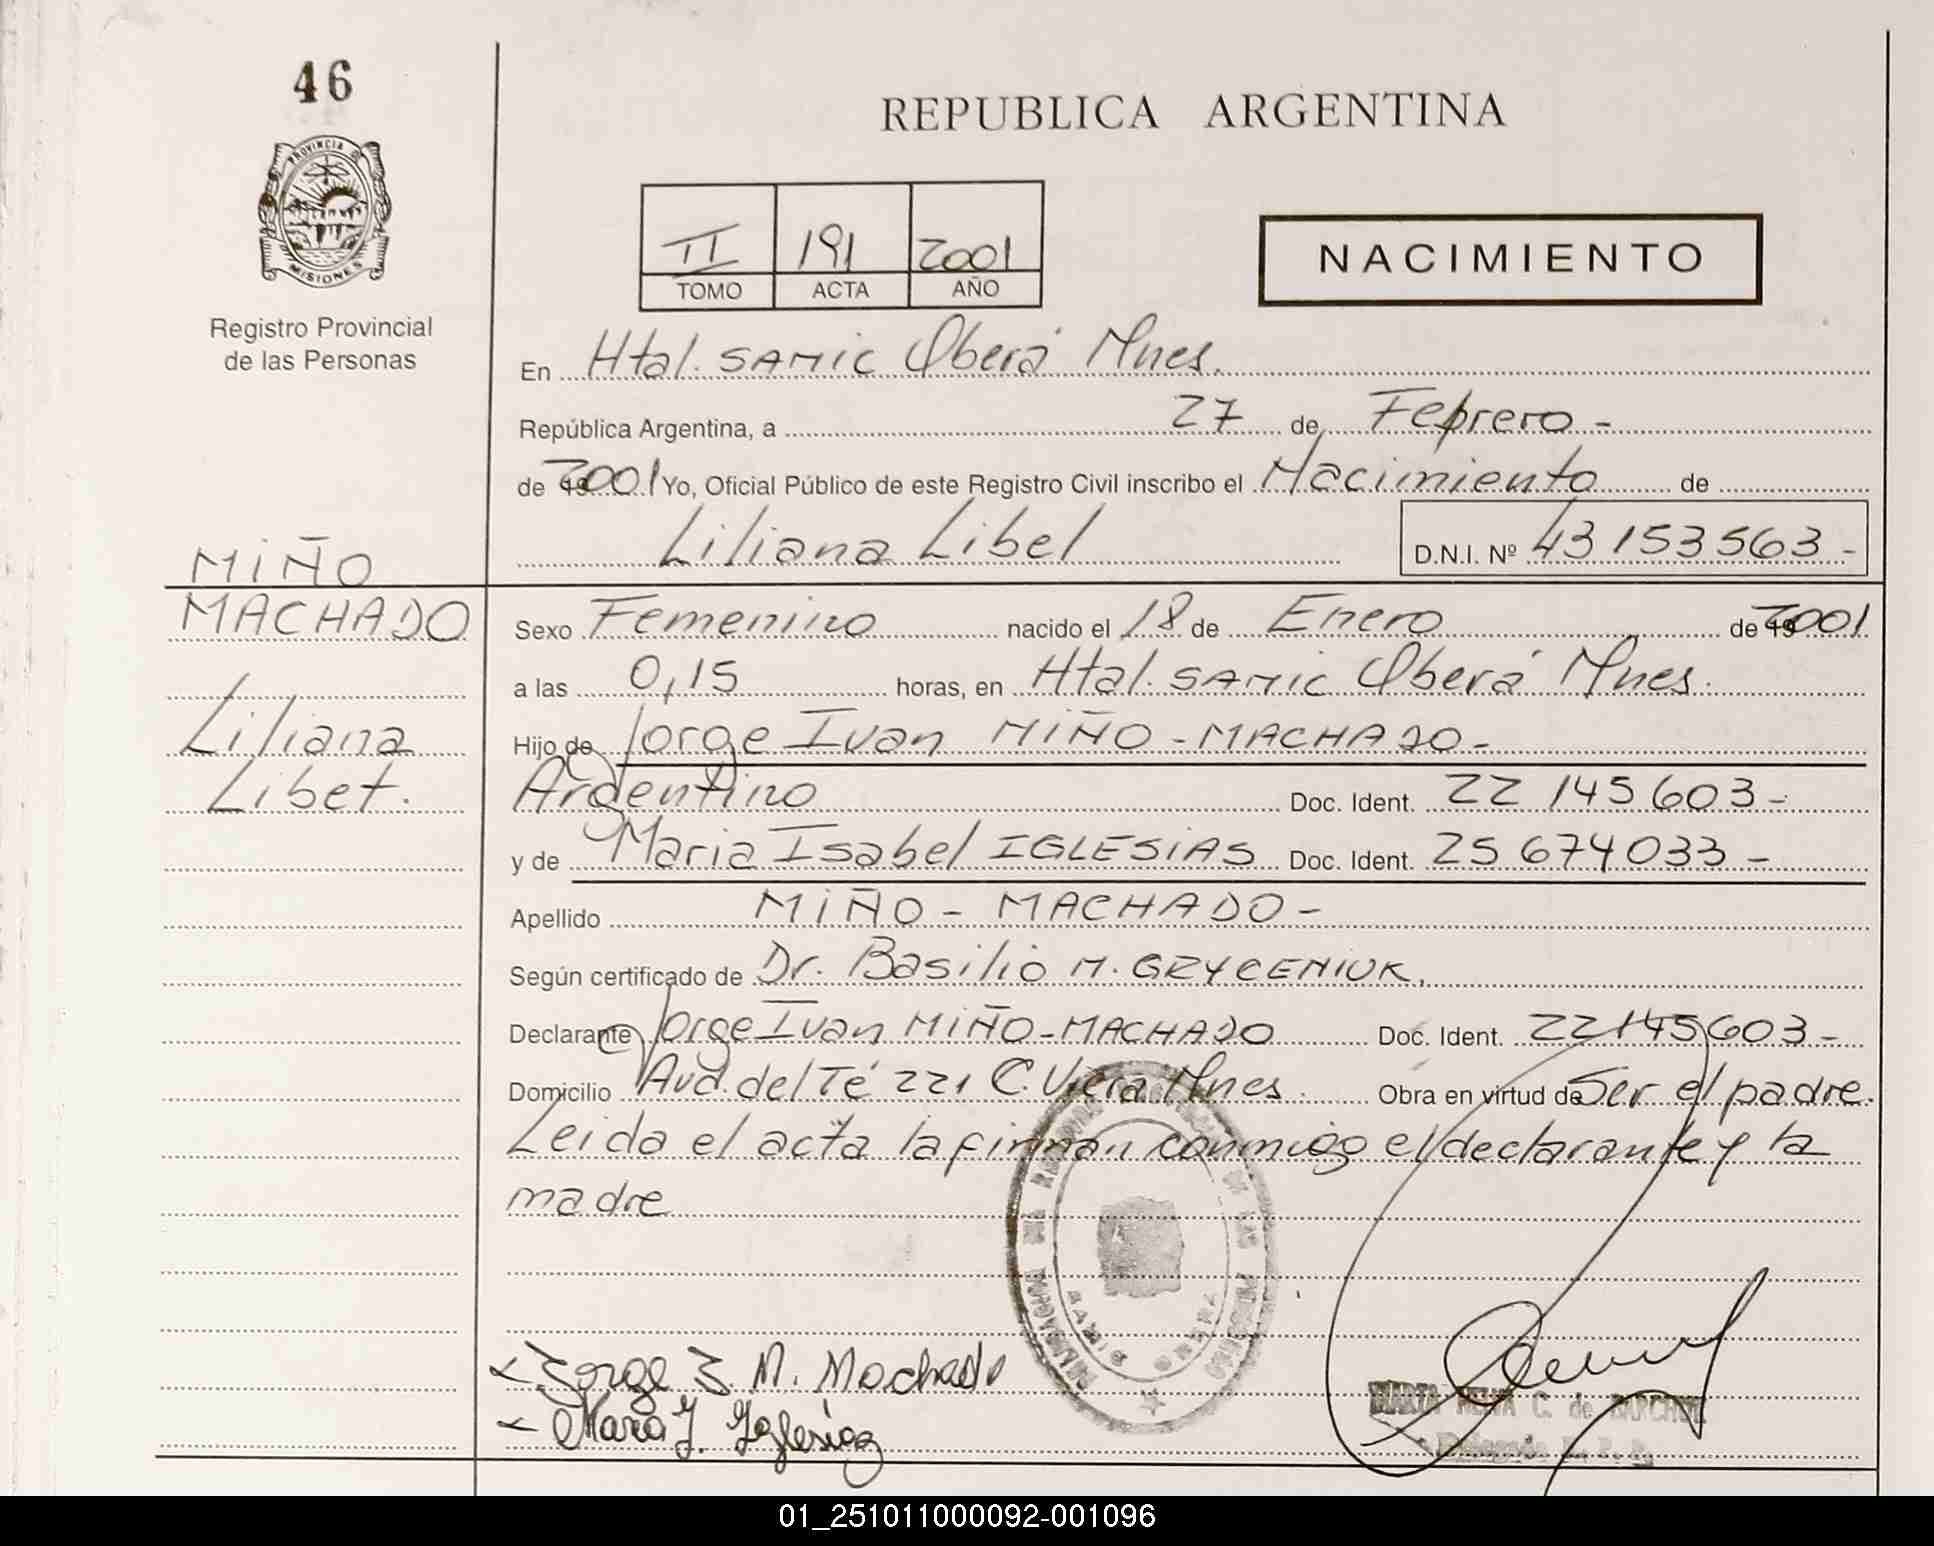 46
PROVINCIA DE
MISIONES
Registro Provincial
de las Personas
REPUBLICA ARGENTINA
II 191 2001
TOMO ACTA AÑO
NACIMIENTO
En Htal. SAMIC Oberá Mnes.
República Argentina, a 27 de Febrero -
de 2001 Yo, Oficial Público de este Registro Civil inscribo el Nacimiento de
Liliana Libel D.N.I. Nº 43 153 563 -
MIÑO
MACHADO
Liliana
Libet.
Sexo Femenino nacido el 18 de Enero de 2001
a las 0,15 horas, en Htal. SAMIC Oberá Mnes.
Hijo de Jorge Ivan MIÑO - MACHADO -
Argentino Doc. Ident. 22 145 603 -
y de Maria Isabel IGLESIAS Doc. Ident. 25 674 033 -
Apellido MIÑO - MACHADO -
Según certificado de Dr. Basilio M. GRYCENIUK.
Declarante Jorge Ivan MIÑO - MACHADO Doc. Ident. 22 145 603 -
Domicilio Avd. del Té 221 C. Viera Mnes. Obra en virtud de Ser el padre.
Leida el acta la firman conmigo el declarante y la
madre
Jorge I. M. Machado
Maria I. Iglesias
C. de
01_251011000092-001096